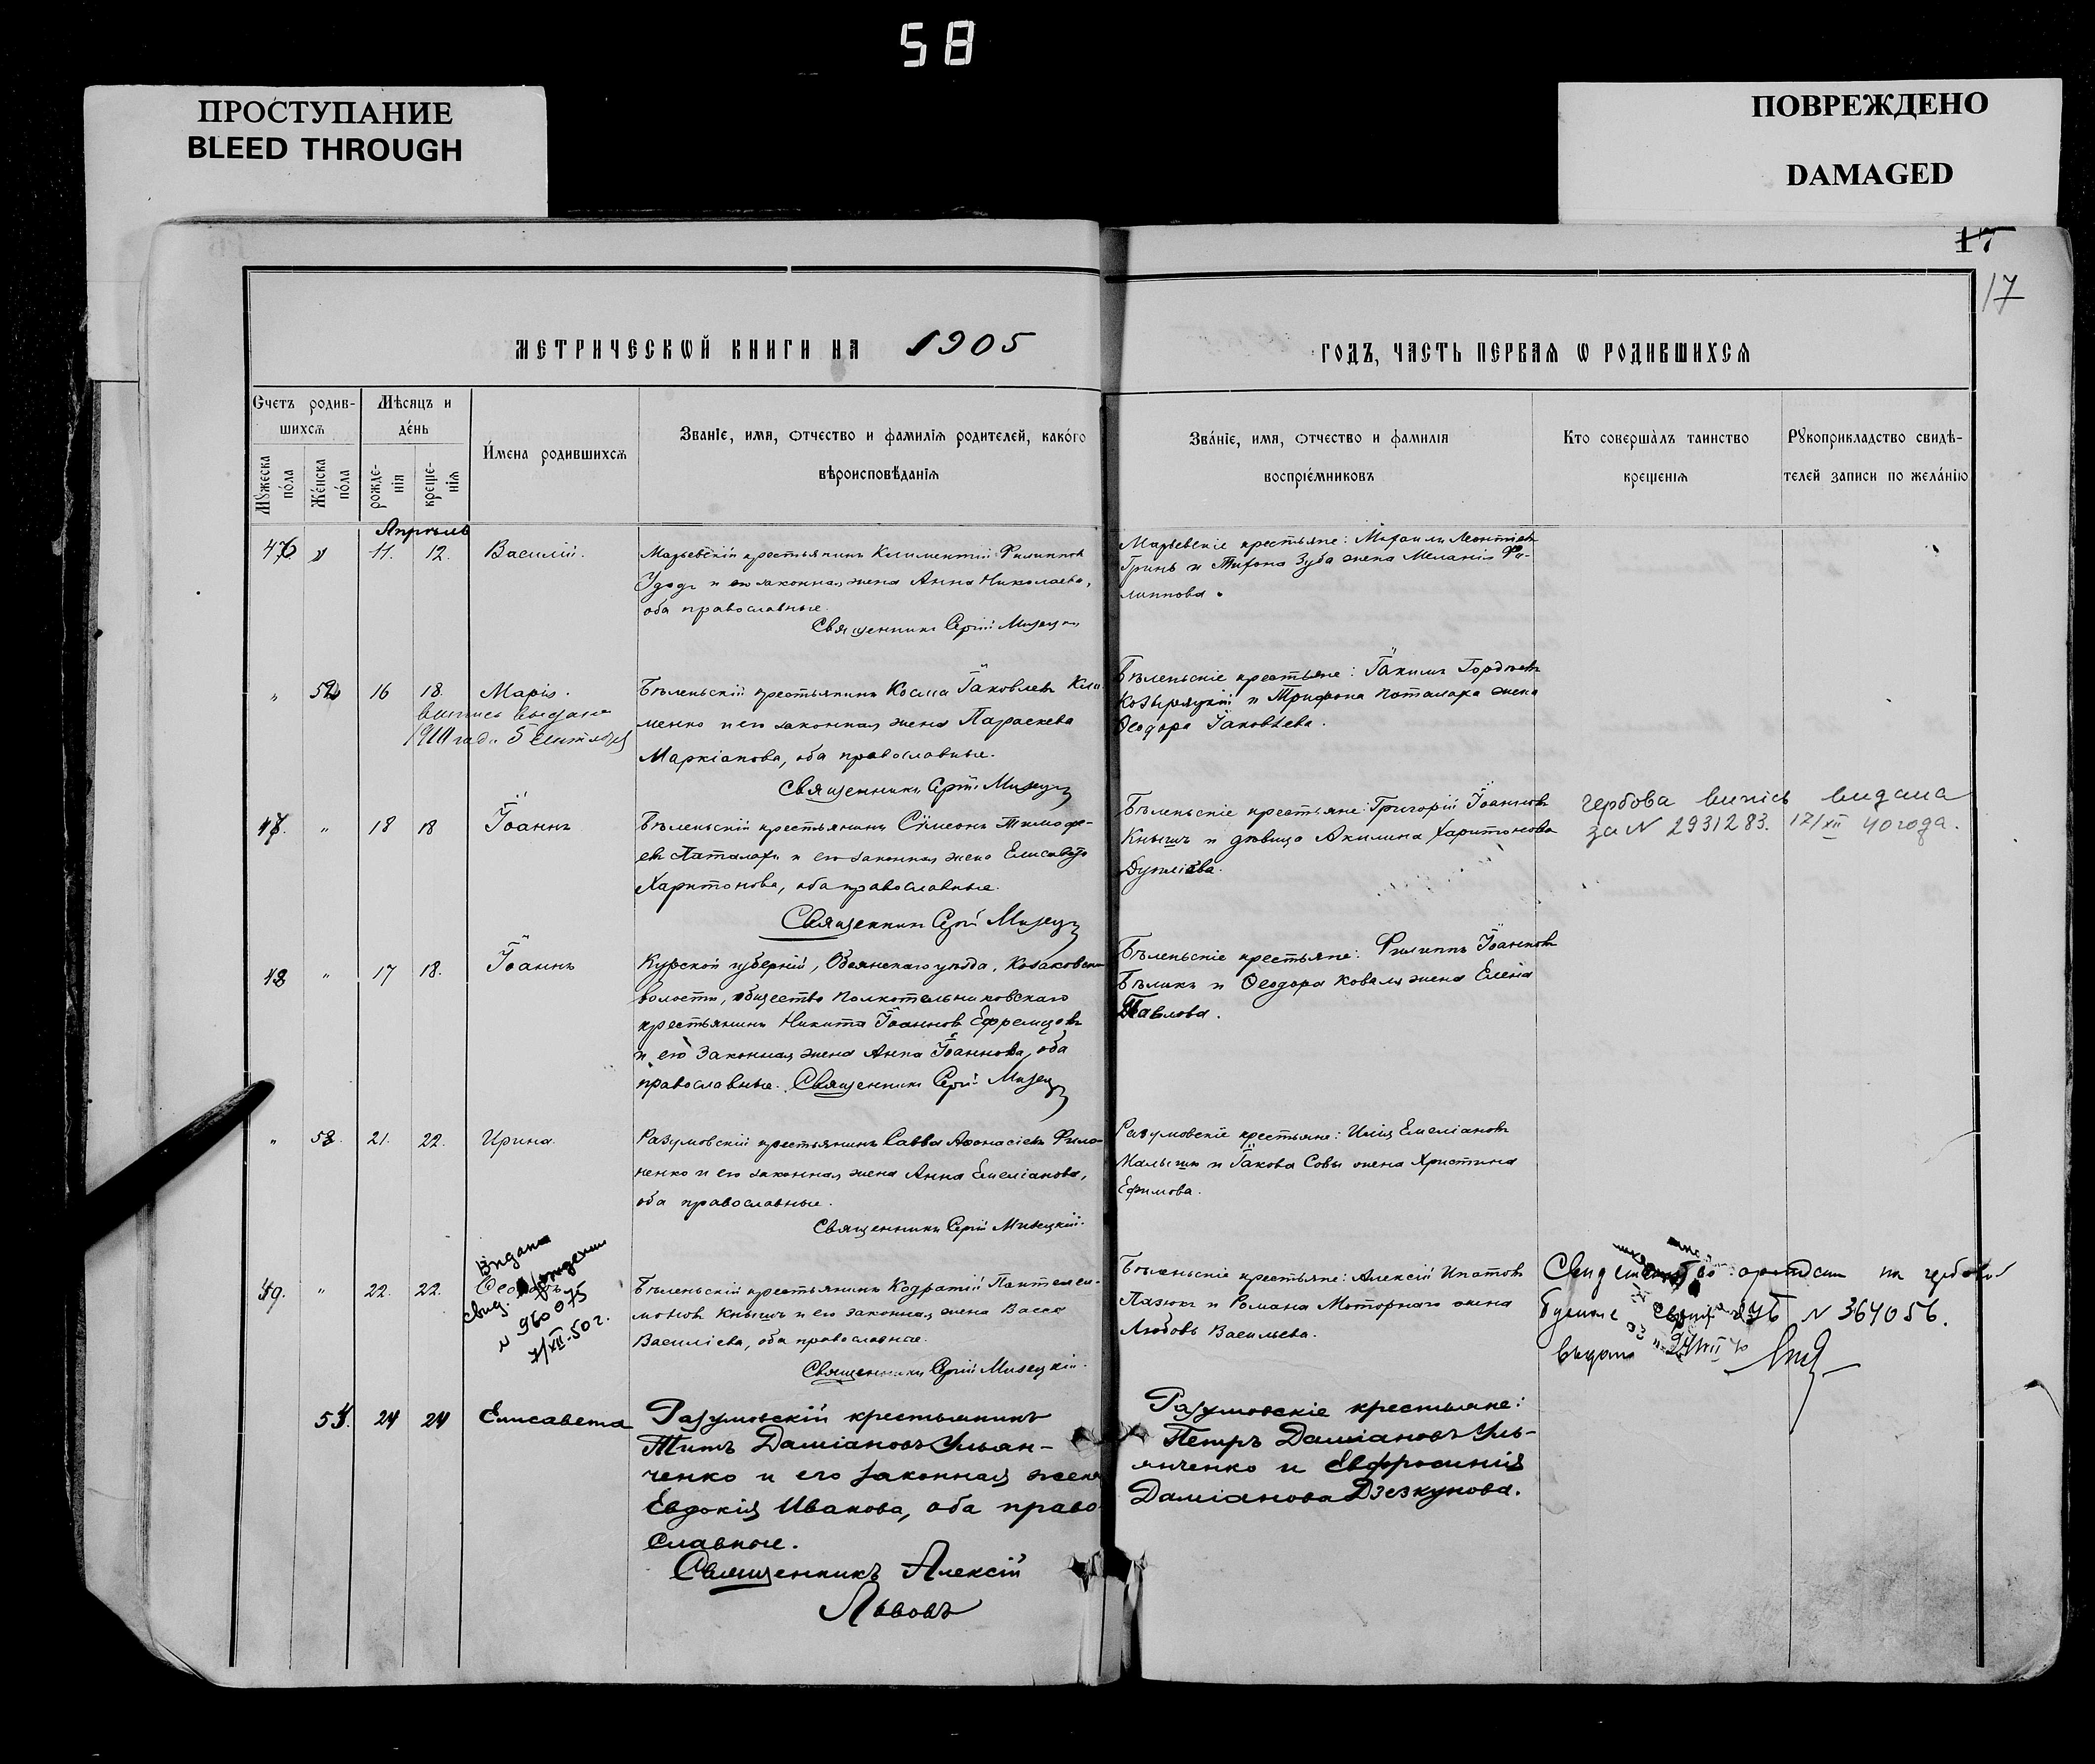 58
ПРОСТУПАНИЕ
BLEED THROUGH
ПОВРЕЖДЕНО
DAMAGED
17
17
МЕТРИЧЕСКѠЙ КНИГИ НА 1905
ГОДЪ, ЧАСТЬ ПЕРВАѦ Ѡ РОДИВШИХСѦ
Счетъ родив-
шихсѧ
Мѣсяцъ и
де́нь
Мꙋжеска
по́ла
Же́нска
по́ла
рожде-
нія
креще-
нія
И́мена родившихсѧ
Званіе, имя, ѻтчество и фамилія родителей, како́го
вѣроисповѣ́данія
Зва́ніе, имя, ѻтчество и фамилія
воспріе́мниковъ
Кто соверша̀лъ таинство
крещенія
Рꙋкоприкладство свидѣ-
телей записи по жела́нію
Апрѣль
46 " 11. 12. Василій.
Марьевскій крестьянинъ Климентій Филиппов
Удодъ и его законная жена Анна Николаева,
оба православные.
Священникъ Сергій Мизецкій
Марьевскіе крестьяне: Михаилъ Леонтіевъ
Гринь и Тихона Зуба жена Меланія Фи-
липпова.
" 52 16 18. Марія.
выпись выдана
5 сентября
Бѣленьскій крестьянинъ Косма Іаковлевъ Кли-
менко и его законная жена Параскева
Маркіанова, оба православные.
Священникъ Сергій Мизецкій
Бѣленьскіе крестьяне: Іакимъ Гордѣевъ
и Трифона Паталаха жена
Ѳеодора Іаковлева.
47. " 18 18 Іоаннъ
Бѣленьскій крестьянинъ Сѵмеонъ Тимоѳе-
евъ Паталахъ и его законная жена Елисавета
Харитонова, оба православные.
Священникъ Сергій Мизецкій
Бѣленьскіе крестьяне: Григорій Іоанновъ
Кнышъ и дѣвица Акилина Харитонова
гербова випись видана
за N 2931283. 17/XII 40 года.
48 " 17 18. Іоаннъ
Курской губерніи, Обоянскаго уѣзда,
волости, общества
крестьянинъ Никита Іоанновъ Ефремовъ
и его законная жена Анна Іоаннова, оба
православные. Священникъ Сергій Мизецкій
Бѣленьскіе крестьяне: Филиппъ Іоанновъ
Бѣликъ и Ѳеодора Коваля жена Елена
Павлова.
" 53. 21. 22. Ирина.
Разумовскій крестьянинъ Савва Аѳанасіевъ Фило-
ненко и его законная жена Анна Емеліанова,
оба православные.
Священникъ Сергій Мизецкій.
Разумовскіе крестьяне: Илія Емеліановъ
Малышъ и Іакова Совы жена Христина
Ефимова.
49. " 22. 22.
Видано
свид. о рождении
N 960075
7/XII-50 г.
Бѣленьскій крестьянинъ Кодратій Пантелеи-
моновъ Кнышъ и его законная жена Васса
Василіева, оба православные.
Священникъ Сергій Мизецкій.
Бѣленьскіе крестьяне: Алексій Ипатовъ
Пазюкъ и Романа Моторнаго жена
Любовь Васильева.
на гербовой
бумаге N 364056.
выдано
54. 24 24 Елисавета
Разумовскій крестьянинъ
Титъ Даміановъ Ульян-
ченко и его законная жена
Евдокія Иванова, оба право-
славные.
Священникъ Алексій
Львовъ
Разумовскіе крестьяне:
Петръ Даміановъ Уль-
янченко и Евфросинія
Даміанова Дзезкунова.